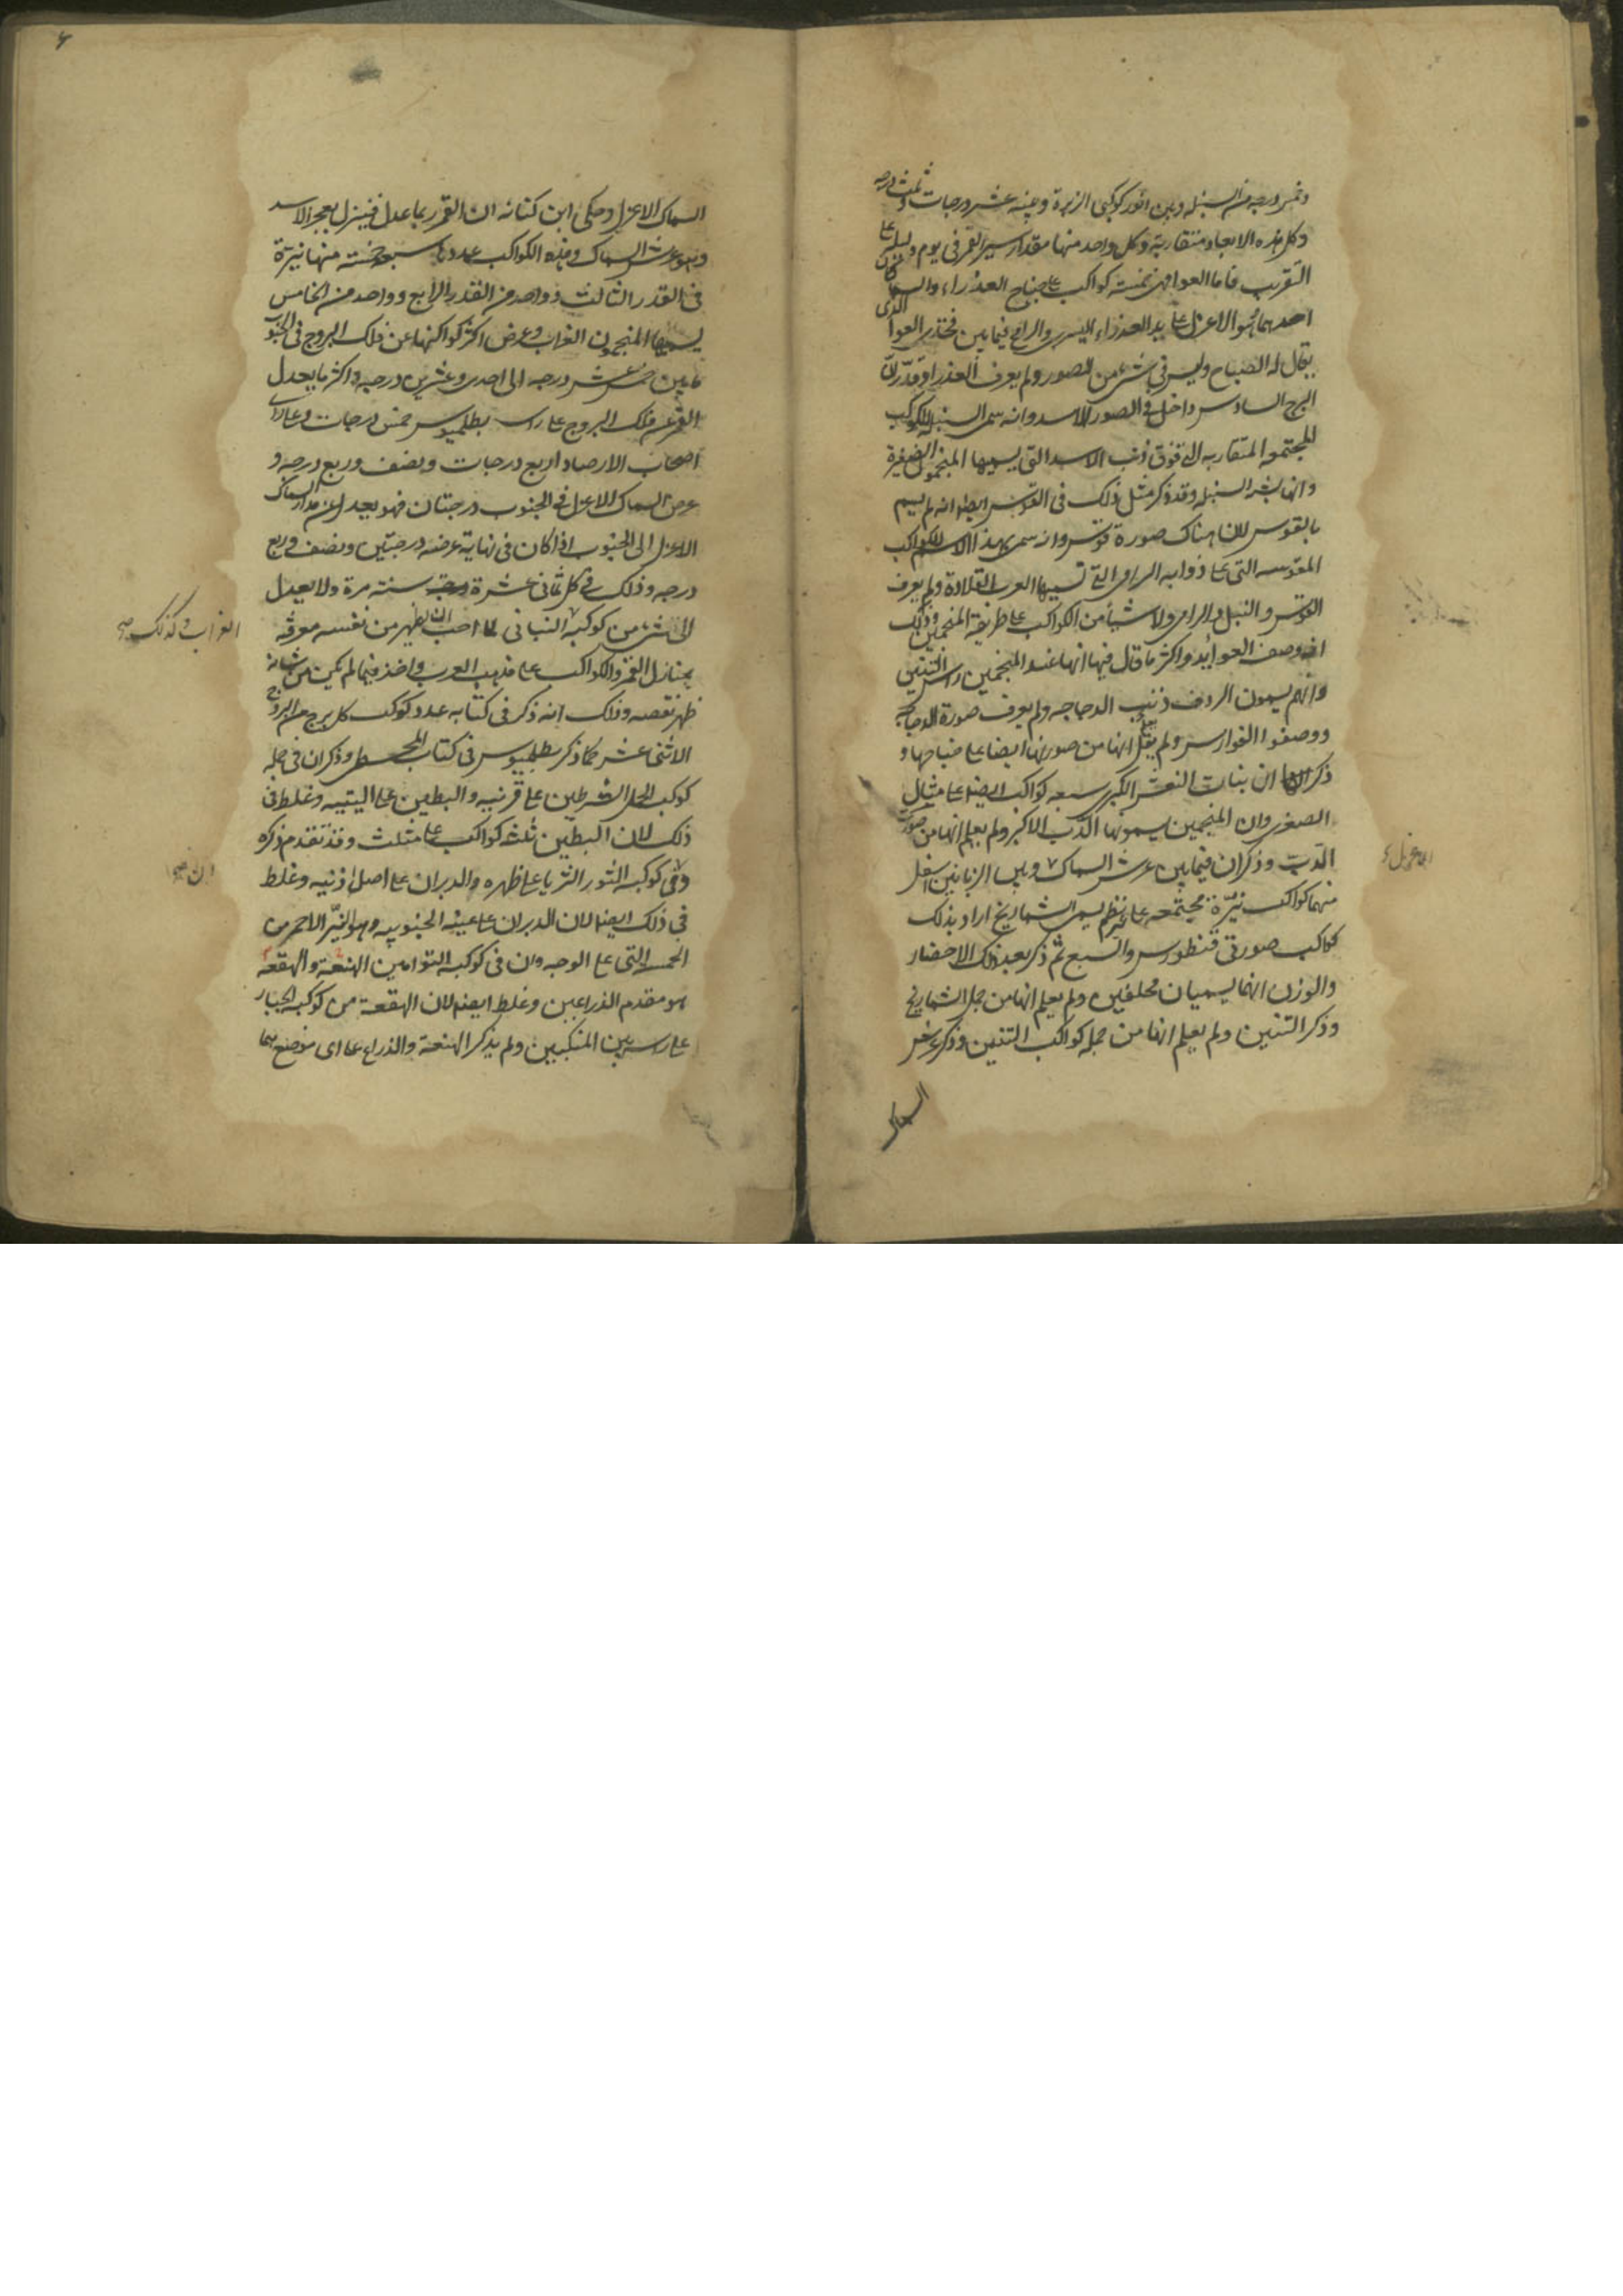 وخمس درجه من السنبله وبين انور كوكبى الزبرة وبينه عشر درجات وثلث درجه
وكل هذه الابعاد متقاربة وكل واحد منها مقدار سير القمر فى يوم وليلة على
التقريب فاما العوا فهى خمسة كواكب على جناح العذراء والسماكان
احدهما هو الاعزل على يد العذراء اليسرى والرامح فيما بين فخذى العوا الذى
يقال له الصياح وليس فى شئ من الصور ولم يعرف العذرا وقدّر انّ
البرج السادس داخل فى الصور الاسد وانه سمى السنبله للكواكب
المجتمعه المتقاربه التى فوق ذنب الاسد التى يسميها المنجمون الضفيرة
وانها بشه السنبله وقد ذكر مثل ذلك فى القوس ايضا انه لم يسم
بالقوس لان هناك صورة قوس وانه سمى بهذا الاسم للكواكب
المقوسه التى على ذوابه الرامى التى تسميها العرب القلادة ولم يعرف
القوس والنبل والرامى ولا شيأ من الكواكب على طريقة المنجمين وذلك
انه وصف العوايذ واكثر ما قال فيها انها عند المنجمين راس التنين
وانهم يسمون الردف ذنب الدجاجه ولم يعرف صورة الدجاجه
ووصفوا الفوارس ولم يقل انها من صورتها ايضا على جناحها و
ذكر ان بنات النعش الكبرى سبعه كواكب ايضا على مثال
الصغرى وان المنجمين يسمونها الدب الاكبر ولم يعلم انها من صورة
الدب وذكر ان فيما بين عرش السماك وبين الزبانين اسفل
منهما كواكب نيّرة مجتمعه على غير نظم يسمى الشماريخ اراد بذلك
كواكب صورتى قنطورس والسبع ثم ذكر بعد ذلك الاحضار
والوزن انهما يسميان محلفين ولم يعلم انهما من جمله الشماريخ
وذكر التنين ولم يعلم انها من جمله كواكب التنين وذكر عرش
السماك
الاعزل
السماك الاعزل وحكى ابن كناته ان القمر ربما عدل فينزل بعجز الاسد
وهو عرش السماك وهذه الكواكب عددها سبعه خمسة منها نيرة
فى القدر الثالث وواحد من القدر الرابع وواحد من الخامس
يسميها المنجمون الغراب وعرض اكثر كواكبها عن فلك البروج فى الجنوب
ما بين خمس عشر درجه الى احدى وعشرين درجه واكثر ما يعدل
القمر عن فلك البروج على راى بطلميوس خمس درجات وعلى راى
اصحاب الارصاد اربع درجات ونصف وربع درجه و
عرض السماك الاعزل فى الجنوب درجتان فهو يعدل عن مدار السماك
الاعزل الى الجنوب اذا كان فى نهاية عرضه درجتين ونصف وربع
درجه وذلك فى كل ثمانى عشرة سنة مرة ولا يعدل
الى شئ من كوكبه الثانى لما احب ان يظهر من نفسه معرفه
بمنازل القمر والكواكب على مذهب العرب واخذ فيما لم يكن من شانه
ظهر نقصه وذلك انه ذكر فى كتابه عدد كوكب كل برج من البروج
الاثنى عشر كما ذكر بطلميوس فى كتاب المجسطى وذكر ان فى جمله
كوكب الحمل الشرطين على قرنيه والبطين على اليتيه وغلط فى
ذلك لان البطين ثلثه كواكب على مثلث وقد تقدم ذكره
وفى كوكبه الثور الثريا على ظهره والدبران على اصل اذنيه وغلط
فى ذلك ايضا لان الدبران على عينه الجنوبيه وهو النيّر الاحمر من
الخمسه التى على الوجه وان فى كوكبه التوامين الهنعة والهقعة
هو مقدم الذراعين وغلط ايضا لان الهقعة من كوكبه الجبار
على راسه بين المنكبين ولم يذكر الهنعة والذراع على اى موضع هما
الغراب وكذلك صح
ان صح